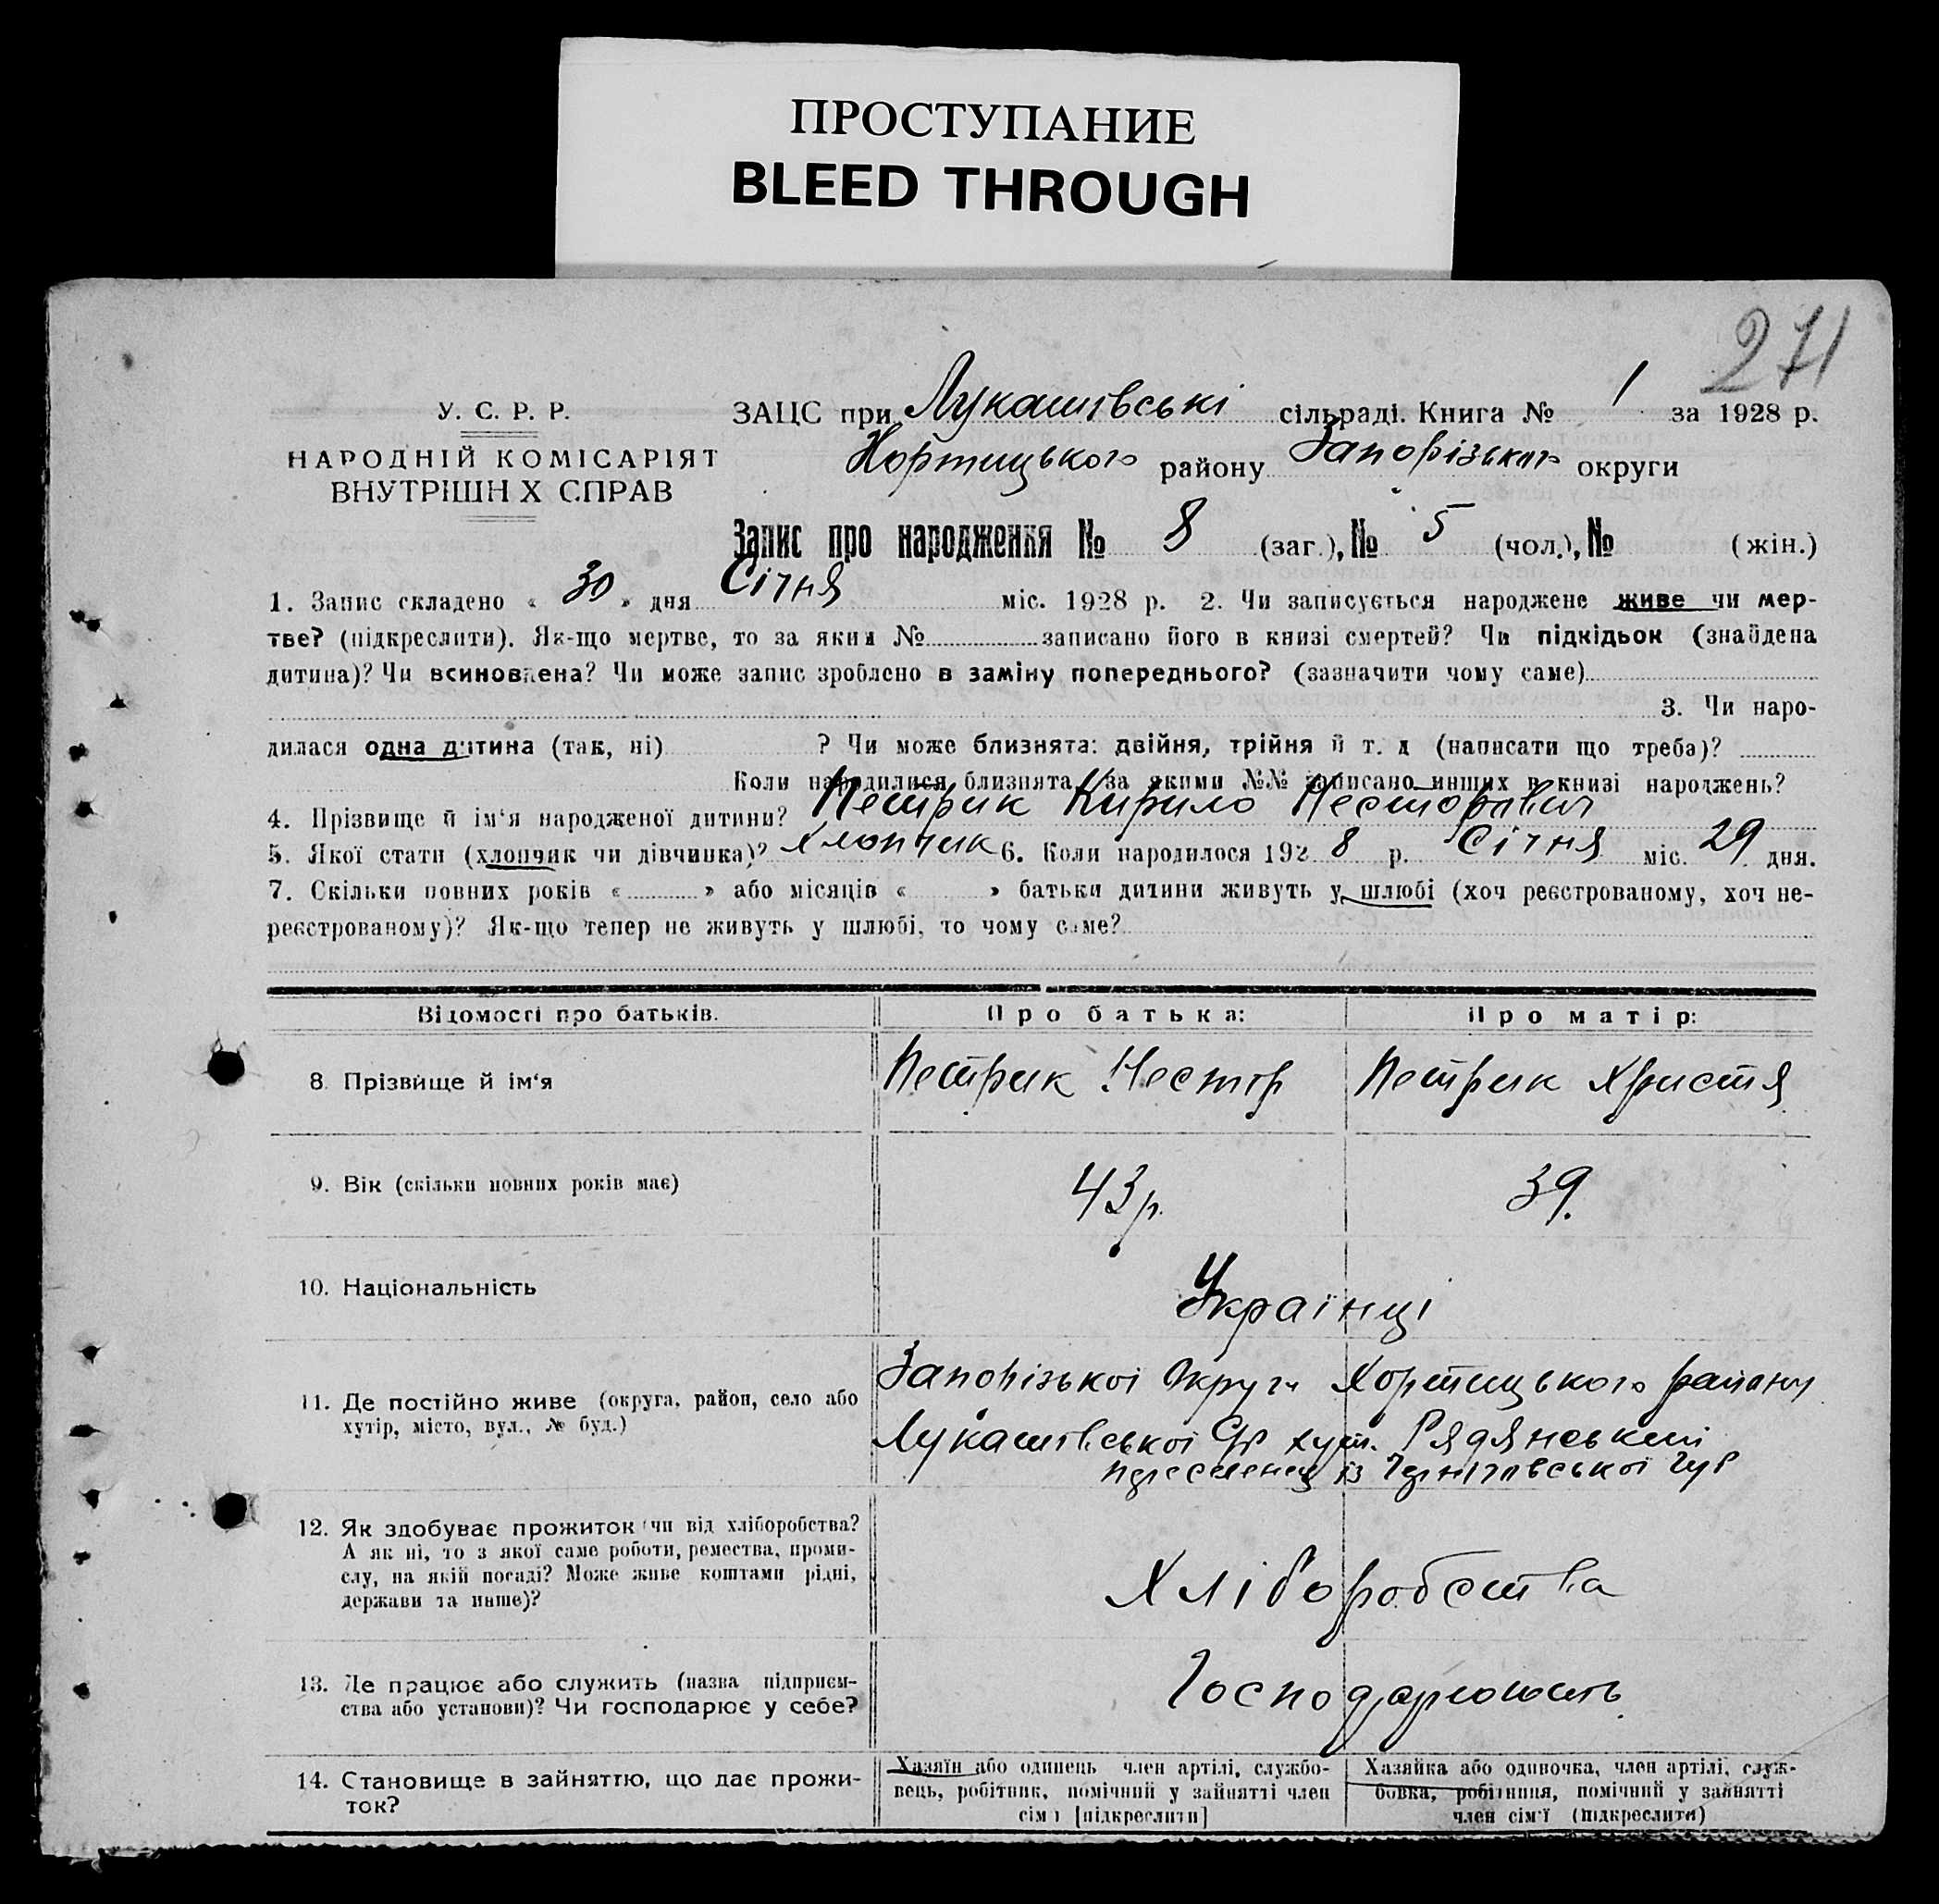 ПРОСТУПАНИЕ
BLEED THROUGH
271
У. С. Р. Р.
НАРОДНІЙ КОМІСАРІЯТ
ВНУТРІШН Х СПРАВ
ЗАЦС при Лукашівські сільраді. Книга № 1 за 1928 р.
Хортицького району Запорізького округи
Запис про народження № 8 (заг.), № 5 (чол.), № (жін.)
1. Запис складено « 30 » дня Січня міс. 1928 р. 2. Чи записується народжене живе чи мер-
тве? (підкреслити). Як-що мертве, то за яким № записано його в книзі смертей? Чи підкідьок (знайдена
дитина)? Чи всиновлена? Чи може запис зроблено в заміну попереднього? (зазначити чому саме)
3. Чи наро-
дилася одна дитина (так, ні) ? Чи може близнята: двійня, трійня й т. д (написати що треба)?
Коли народилися близнята, за якими №№ записано инших в книзі народжень?
4. Прізвище й ім'я народженої дитини? Петрик Кирило Несторович
5. Якої стати (хлопчик чи дівчинка)? Хлопчик 6. Коли народилося 192 8 р. Січня міс. 29 дня.
7. Скільки повних років « » або місяців « » батьки дитини живуть у шлюбі (хоч реєстрованому, хоч не-
реєстрованому)? Як-що тепер не живуть у шлюбі, то чому саме?
Відомості про батьків. Про батька: Про матір:
8 Прізвище й ім'я Петрик Нестор Петрик Христя
9. Вік (скільки повних років має) 43 р. 39.
10. Національність Українці
11. Де постійно живе (округа, район, село або
хутір, місто, вул., № буд.)
Запорізької Округи Хортицького району
Лукашівської С/р хут. Рядянський
переселенец із Чернігівської Губ
12. Як здобуває прожиток (чи від хліборобства?
А як ні, то з якої саме роботи, ремества, проми-
слу, на якій посаді? Може живе коштами рідні,
держави та инше)?
Хліборобства
13. Де працює або служить (назва підприєм-
ства або установи)? Чи господарює у себе?
Господарюють
14. Становище в зайняттю, що дає прожи-
ток?
Хазяїн або одинець член артілі, службо-
вець, робітник, помічний у зайнятті член
сім ї [підкреслити]
Хазяйка або одиночка, член артілі, служ-
бовка, робітниця, помічний у зайнятті
член сім'ї (підкреслити)